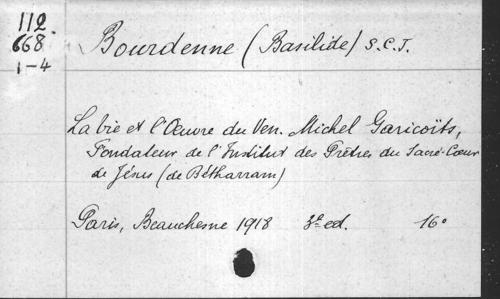 112
668
1-4
Bourdenne (Basilide) S.C.J.
La vie et l'Œuvre du Ven. Michel Garicoïts,
Fondateur de l'Institut des Prêtres du Sacré-Cœur
de Jésus (de Bétharram)
Paris, Beauchesne 1918 3e ed. 16°